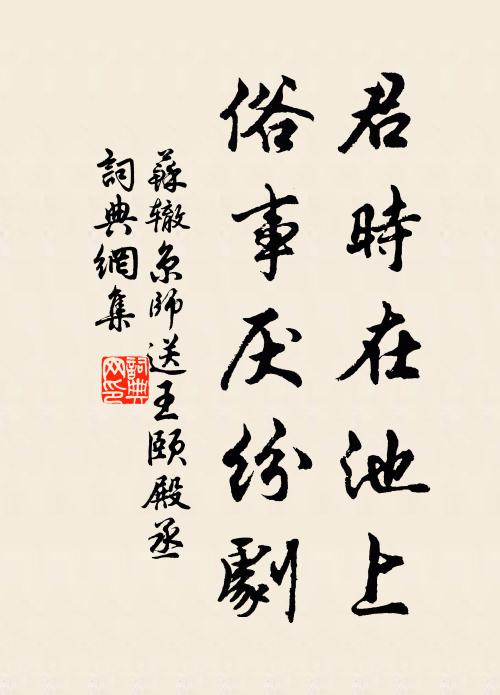 君時在池上
俗事厌紛劇
蘇辙京師送王頤殿丞
詞典網集
詞典网印